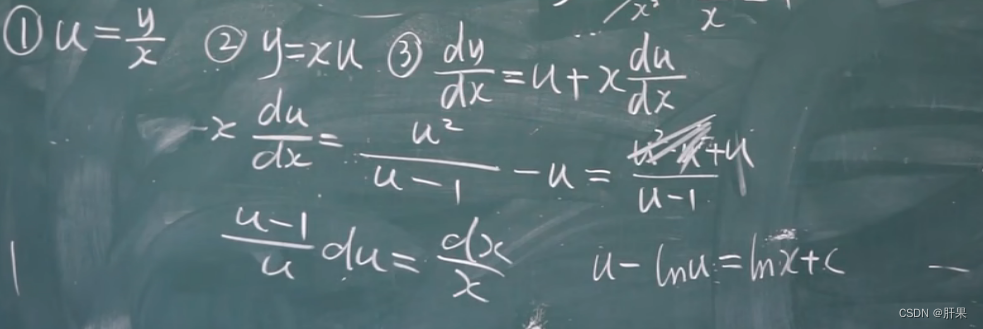 ① u = y/x ② y = xu ③ dy/dx = u + x du/dx
x du/dx = u²/(u-1) - u = u/(u-1)
(u-1)/u du = dx/x u - lnu = lnx + c
CSDN @肝果